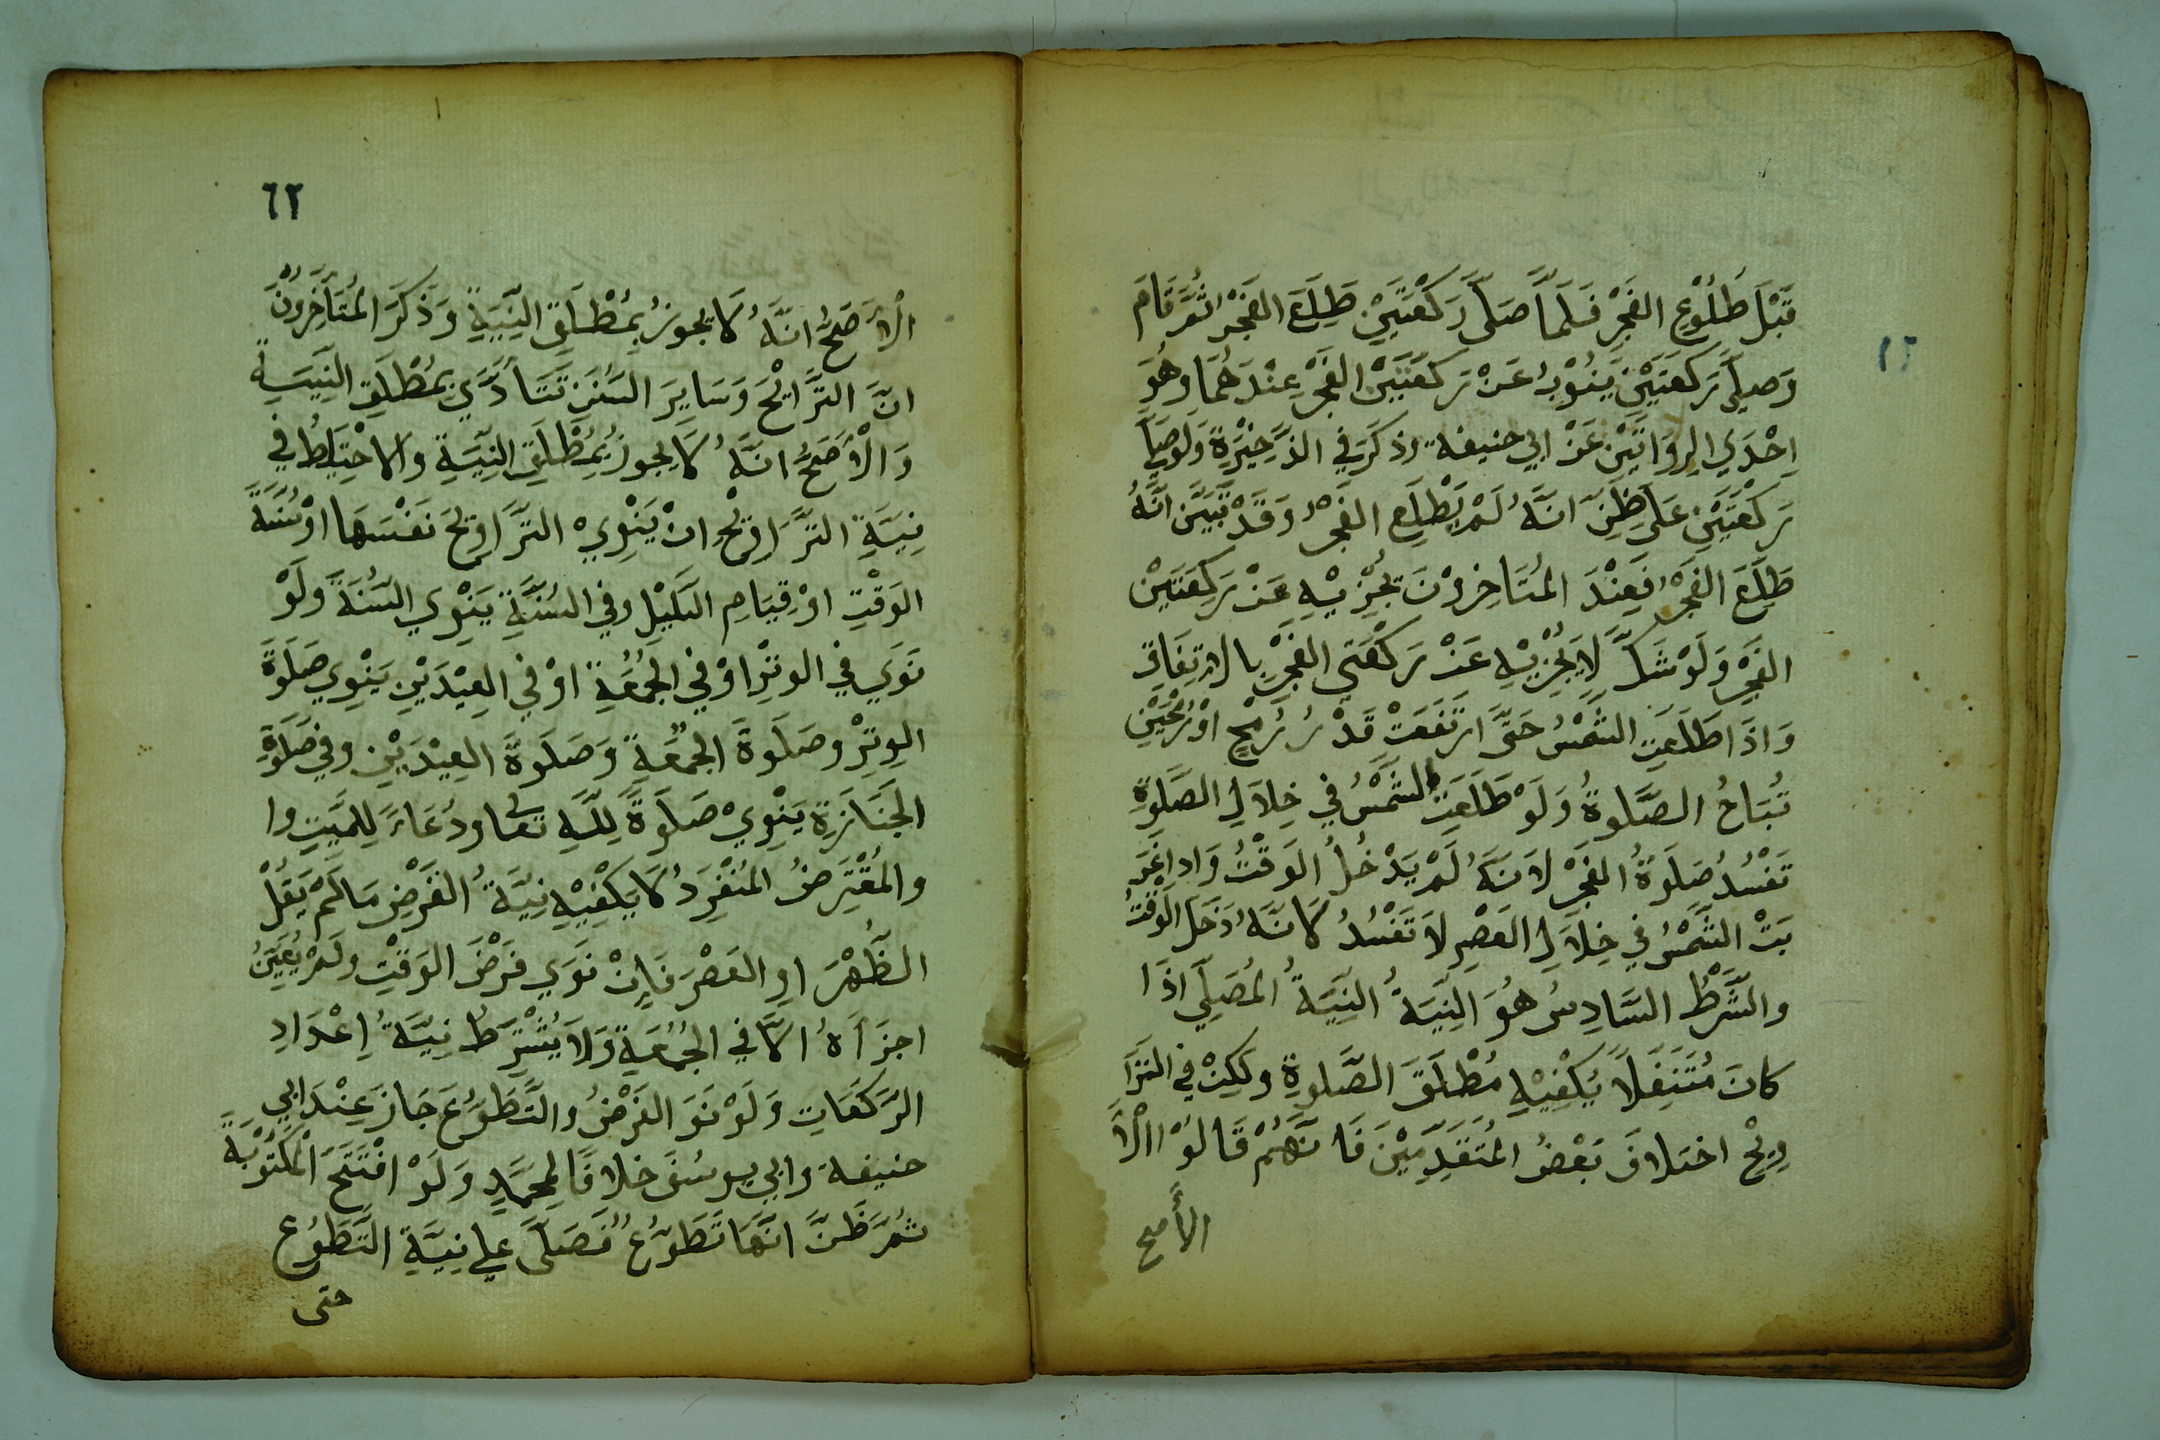 قَبْلَ طُلُوْعِ الفَجْرِ فَلَمَّا صَلَّى رَكْعَتَيْنِ طَلَعَ الفَجْرُ ثُمَّ قَامَ
وَصَلَّى رَكْعَتَيْنِ يَنُوْبُ عَنْ رَكْعَتَيْنِ الفَجْرِ عِنْدَهُمَا وَهُوَ
اِحْدَي الرِوَايَتَيْنِ عَنْ ابي حنيفة وذكَرَ في الذَّخِيْرَةِ وَلَوصَلَّي
رَكْعَتَيْنِ عَلَى ظَنِّ انَّهُ لَمْ يَطْلِعِ الفَجْرُ وَقَدْ تَبَيَّنَ انَّهُ
طَلَعَ الفَجْرُ فَعِنْدَ المُتَاخِرِوْنَ تُجْزِيْهِ عَنْ رَكَعَتَيْنِ
الفَجْرِ وَلَوْ شَكَّ لَا يُجْزِيْهِ عَنْ رَكْعَتَي الفَجْرِ بِالاِتِّفَاقِ
وَاذَا طَلَعَتِ الشَّمْسُ حَتَّى ارْتَفَعَتْ قَدْرُ رُمْحٍ اوْ رُمْحَيْنِ
تُبَاحُ الصَّلوةُ وَلَوْ طَلَعَتِ الشَّمْسُ في خِلاَلِ الصَّلَوةِ
تَفْسُدُ صَلَوةُ الفَجْرِ لاَنَّهُ لَمْ يَدْخُلُ الوَقْتُ وَاذاغَرَ
بَتْ الشَّمْسُ في خِلاَلِ العَصْرِ لاَ تَفْسُدُ لاَنَّهُ دَخَلَ الْوَقْتُ
والشَّرْطُ السَّادِسُ هُوَ النِيَّةُ النِيَّةُ المُصَلِّي اذَا
كانَ مُتَنَفِلاً يَكْفِيْهِ مُطْلَقَ الصَّلوةِ ولكِنْ في التَرَا
وِيْحِ اختلافَ بَعْضُ المُتَقَدِّمِيْنَ فَانَّهُمْ قَالُوْا الْاَ
الأصح
٦٢
الْاَصَحُّ انَّهُ لَا يجوزُ بِمُطْلَقِ النِيَّةِ وَذَكَرَ المُتَأَخِرُوْنَ
انَّ التَّرَايْحَ وَسَايِرَ السُنَنِ تَتَأَدَّي بِمُطْلَقِ النِيَّةِ
وَالْاَصَحُّ انَّهُ لَا يجوزُ بِمُطْلَقِ النِيَّةِ والاحْتِيَاطُ في
نِيَّةِ التَّرَاوِيْحِ انْ يَنْوِيْ التَّرَاوِيحَ نَفْسَهَا اوْ سُنَّةَ
الوَقْتِ اوْ قِيَامِ اللَيْلِ وفي السُنَّةِ يَنْوِي السُنَةَ وَلَوْ
نَوَي في الوتِرْ اوْ في الجُمُعَةِ اوْ في العِيْدَيْنِ يَنْوِي صَلَوةَ
الوِتِرْ وصَلَوةَ الجُمْعَةِ وَصَلَوةَ العِيْدَيْنِ وفي صَلَوةِ
الجَنَازَةِ يَنْوِيْ صَلَوةً لِلَّهِ تعالى ودُعَاءً لِلمَيِّتِ وا
والمُفْتَرِضُ المُنْفَرِدُ لَا يَكْفِيْهِ نِيَّةُ الفَرْضِ مَا لَمْ يَقُلْ
الظُهْرَ اوِ العَصْرَ فَاِنْ نَوَي فَرْضَ الوَقْتِ ولَمْ يُعَيِّنْ
اجزَأَهُ الَّا في الجُمُعَةِ وَلاَ يُشْتَرَطُ نِيَّةُ اِعْدَادِ
الرَّكَعَاتِ وَلَوْ نَوَ الفَرْضُ والتَّطَوُّعَ جَازَ عِنْدَ ابي
حنيفة وابي يوسُفَ خلافًا لِمحَمَّدٍ وَلَوْ افْتَتَحَ الْمَكتُوْبَةَ
ثُمَّ ظَنَّ انَّهَا تَطَوُّعُ فَصَلَّى علي نِيَّةِ التَّطَوُعِ
حتى